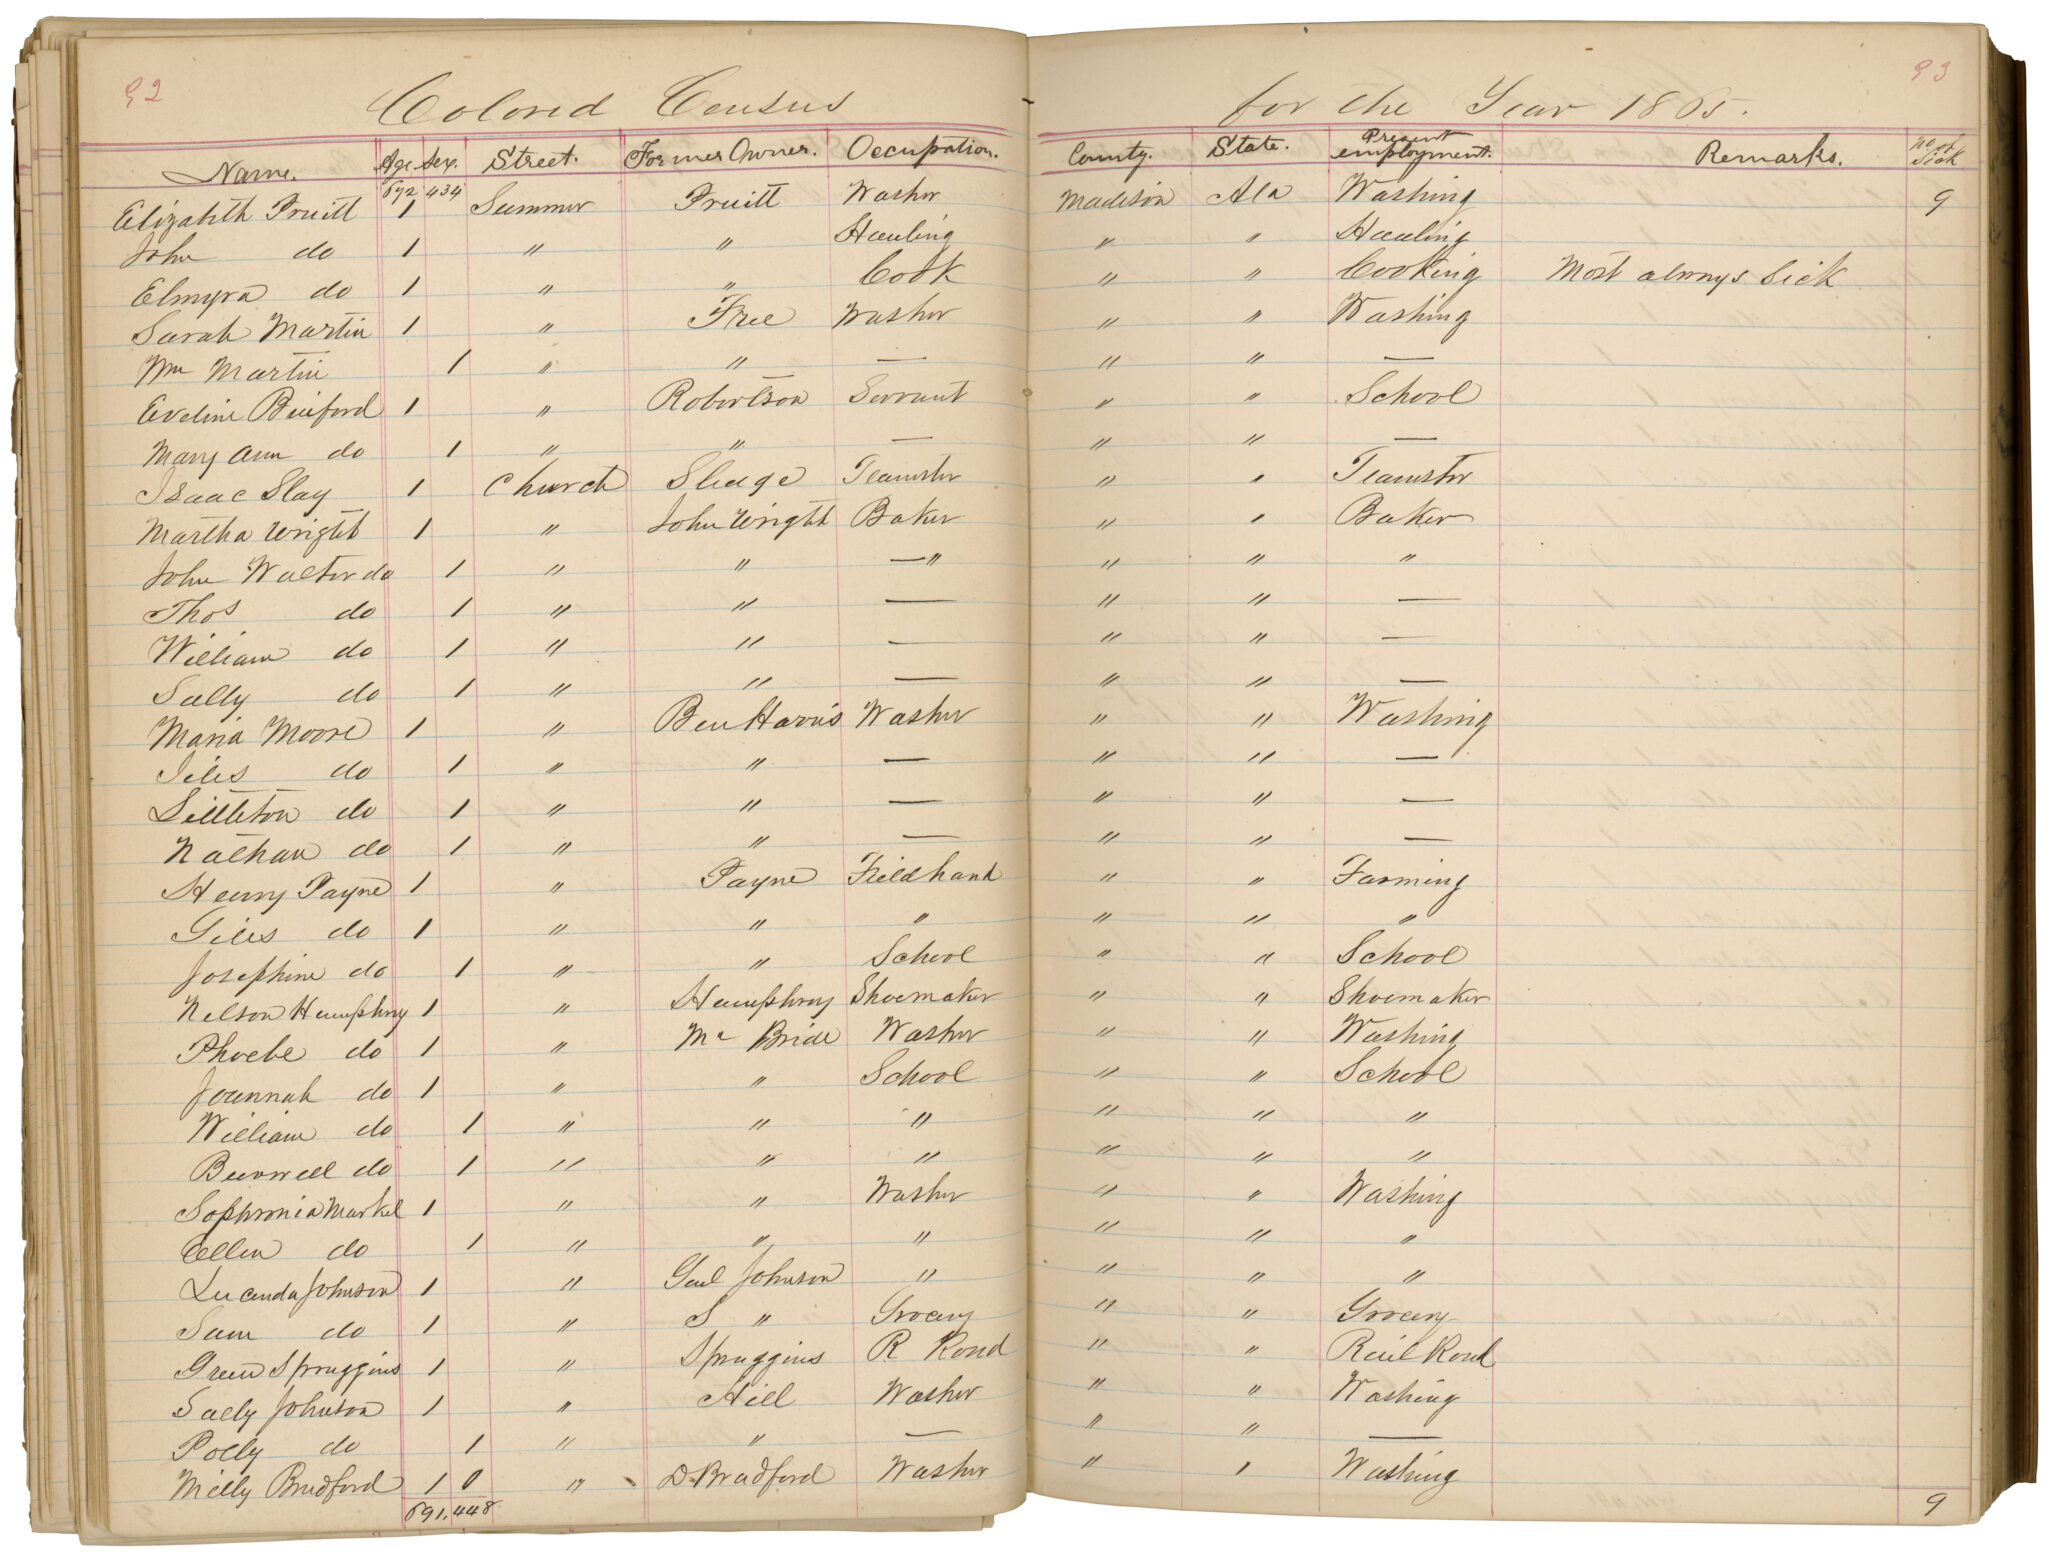 92 93
Colored Census for the Year 1865.
Name. Age Sex. Street. Former Owner. Occupation. County. State. Present employment. Remarks. No of Sick
672 434
Elizabeth Pruitt 1 Summer Pruitt Washer Madison Ala Washing 9
John do 1 " " Hauling " " Hauling
Elmyra do 1 " " Cook " " Cooking Most always Sick
Sarah Martin 1 " Free Washer " " Washing
Wm Martin 1 " " — " " —
Eveline Binford 1 " Robertson Servant " " School
Mary Ann do 1 " " — " " —
Isaac Slay 1 Church Sledge Teamster " " Teamster
Martha Wright 1 " John Wright Baker " " Baker
John Walter do 1 " " —" " " "
Thos do 1 " " — " " —
William do 1 " " — " " —
Sally do 1 " " — " " —
Maria Moore 1 " Ben Harris Washer " " Washing
Jiles do 1 " " — " " —
Littleton do 1 " " — " " —
Nathan do 1 " " — " " —
Henry Payne 1 " Payne Fieldhand " " Farming
Giles do 1 " " " " " "
Josephine do 1 " " School " " School
Nelson Humphry 1 " Humphry Shoemaker " " Shoemaker
Phoebe do 1 " Mc Bride Washer " " Washing
Joannah do 1 " " School " " School
William do 1 " " " " " "
Burwell do 1 " " " " " "
Sophronia Markel 1 " " Washer " " Washing
Ellen do 1 " " " " " "
Lucinda Johnson 1 " Johnson " " " "
Sam do 1 " S " Grocery " " Grocery
Green Spruggins 1 " Spruggins R Road " " Rail Road
Sally Johnson 1 " Hill Washer " " Washing
Polly do 1 " " — " " —
Milly Bradford 1 0 " D. Bradford Washer " " Washing
691, 448 9